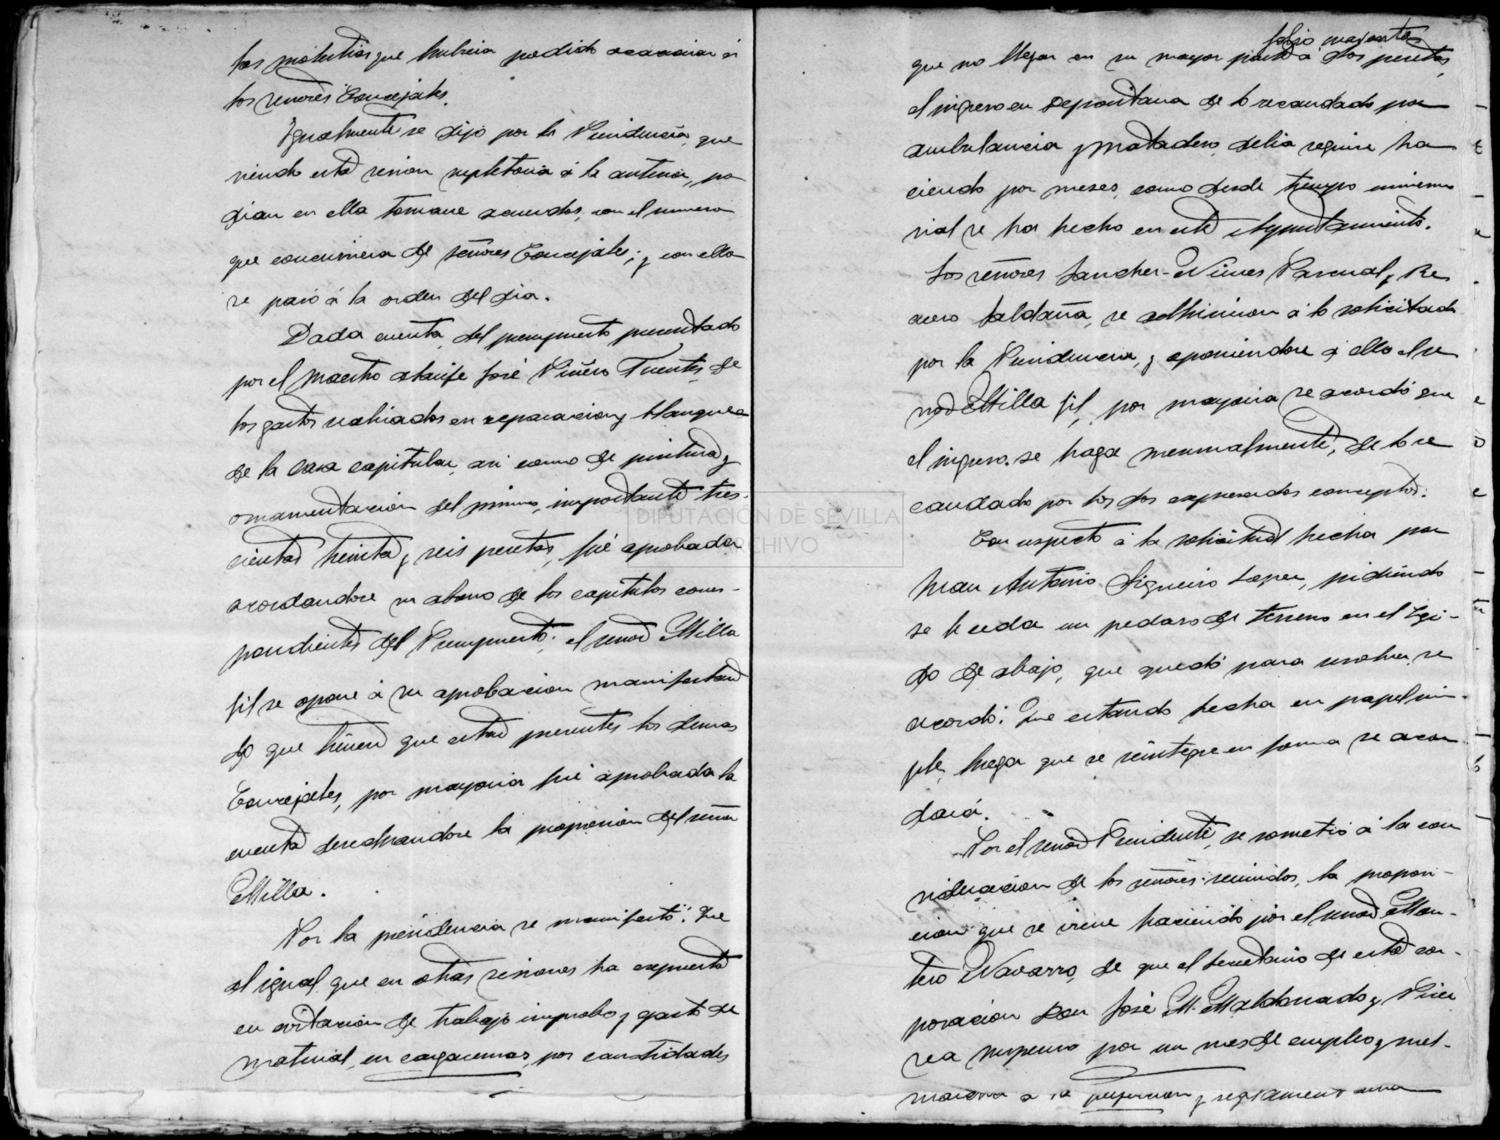 las molestias que hubiera podido ocasionar á
los señores Concejales.
Igualmente se dijo por la Presidencia, que
siendo esta sesion supletoria á la anterior, po
dian en ella tomarse acuerdos, con el numero
que concurriera de señores Concejales; y con ello
se pasó á la orden del dia.
Dada cuenta, del presupuesto presentado
por el maestro alarife José Piñero Fuentes, de
los gastos realizados en reparacion y blanqueo
de la casa capitular, asi como de pintura y
ornamentacion del mismo, importante tres-
cientas treinta y seis pesetas, fué aprobada
acordandose su abono de los capitulos corres-
pondientes del Presupuesto; el señor Milla
Gil se opone á su aprobacion manifestan
do que tienen que estar presentes los demas
Concejales, por mayoria fué aprobada la
cuenta desechandose la proposicion del señor
Milla.
Por la presidencia se manifestó: Que
al igual que en otras sesiones ha expuesto
en evitacion de trabajo improbo y gasto de
material, en cargaremes, por cantidades
folio majenta
que no llegan en su mayor parte á dos pesetas,
el ingreso en Depositaria de lo recaudado por
ambulancia y matadero, debia seguirse ha
ciendo por meses, como desde tiempo inmemo
rial se ha hecho en este Ayuntamiento.
Los señores Sanchez-Nieves Pascual, y Re
cuero Saldaña, se adhirieron á lo solicitado
por la Presidencia, y oponiendose á ello el se
ñor Milla Gil, por mayoria se acordó que
el ingreso se haga mensualmente, de lo re
caudado por los dos expresados conceptos.
Con respecto á la solicitud hecha por
Juan Antonio Sigueiro Lopez, pidiendo
se le ceda un pedazo de terreno en el Egi-
do de abajo, que quedó para resolver, se
acordó: Que estando hecha en papel sim-
ple, luego que se reintegre en forma se acor
dará.
Por el señor Presidente, se sometió á la con
sideracion de los señores reunidos, la proposi-
cion que se viene haciendo por el señor Mon-
tero Navarro, de que el Secretario de esta cor-
poracion Don José M. Maldonado y Pinea
rea suspenso por un mes de empleo y suel-